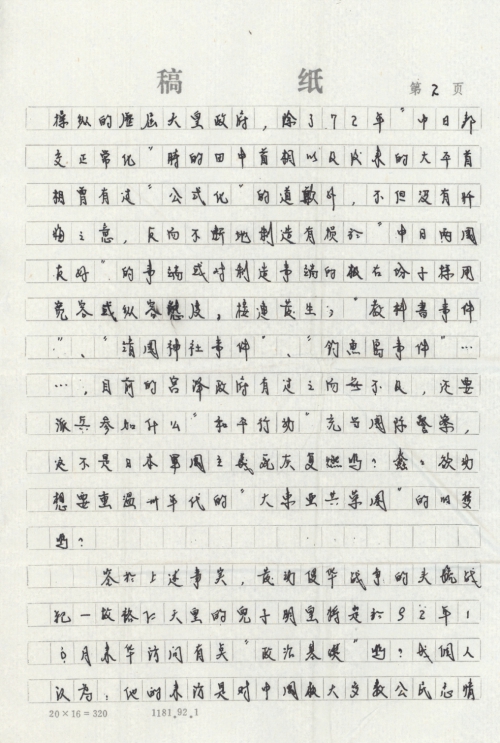 稿 纸
第 2 页
操纵的历届天皇政府，除了72年"中日邦
交正常化"时的田中首相以及后来的大平首
相曾有过"公式化"的道歉外，不但没有忏
悔之意，反而不断地制造有损於"中日两国
友好"的事端或对制造事端的极右份子採用
宽容或纵容態度，接連发生了"教科書事件
"、"靖国神社事件"、"钓魚島事件"…
…，目前的宫泽政府有过之而無不及，还要
派兵参加什么"和平行动"充当国际警察，
这不是日本軍国主義死灰复燃吗？
想要重温卅年代的"大東亜共荣圈"的旧梦
吗？
鉴於上述事实，发动侵华战争的头號战
犯—故裕仁天皇的兒子明皇将是於92年1
0月来华访问有点"政治基礎"吗？我個人
认为：他的来访是对中国极大多数公民感情
20×16=320 1181.92.1